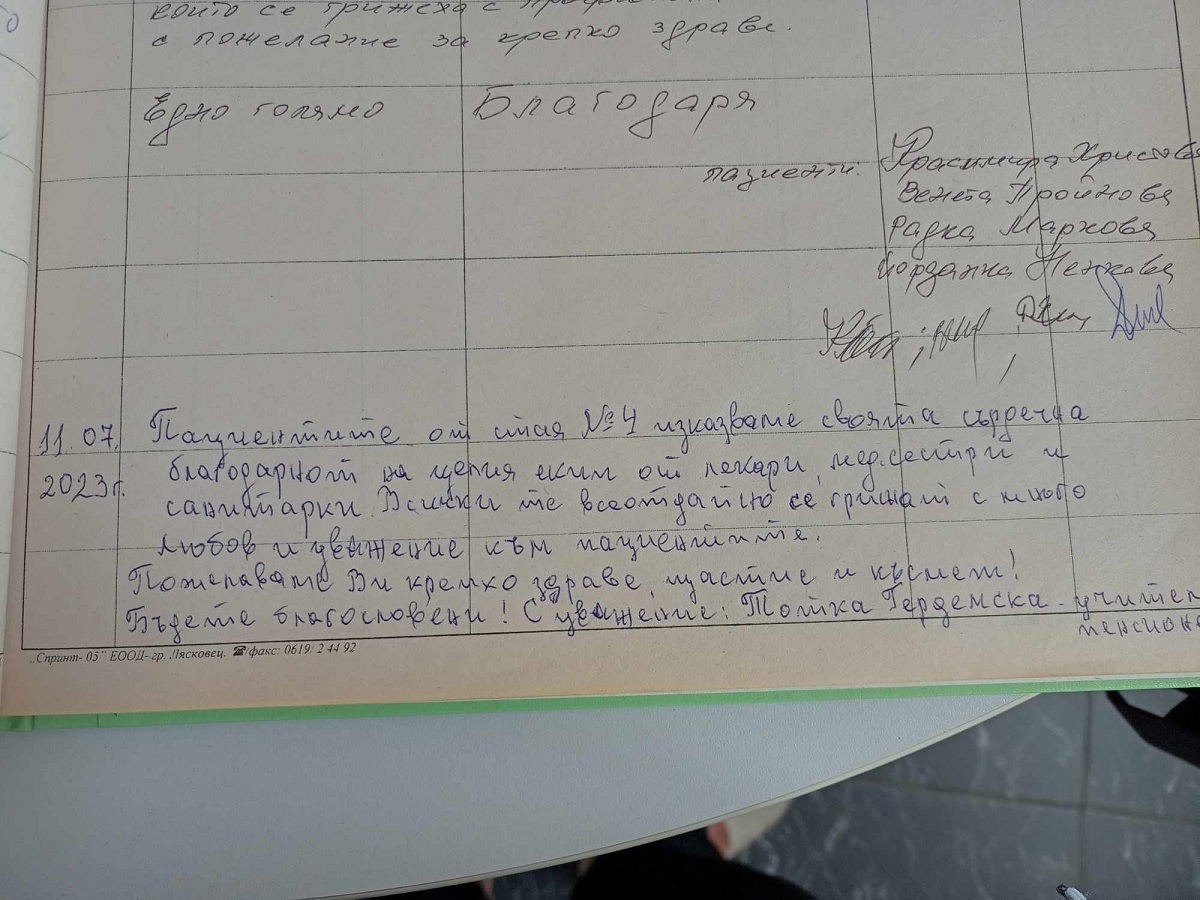 които се грижеха с
с пожелание за крепко здраве.
Едно голямо Благодаря
пациенти: Красимира Христова
Венета Пройнова
Радка Маркова
Йорданка Ненкова
11.07. Пациентите от стая №4 изказваме своята сърдечна
2023г. благодарност на целия екип от лекари, мед.сестри и
санитарки. Всички те всеотдайно се грижат с много
любов и уважение към пациентите.
Пожелаваме Ви крепко здраве, щастие и късмет!
Бъдете благословени! С уважение: Тотка Гердемска - учител
пенсион
„Спринт- 05" ЕООД- гр. Лясковец. ☎/факс: 0619: 2 44 92